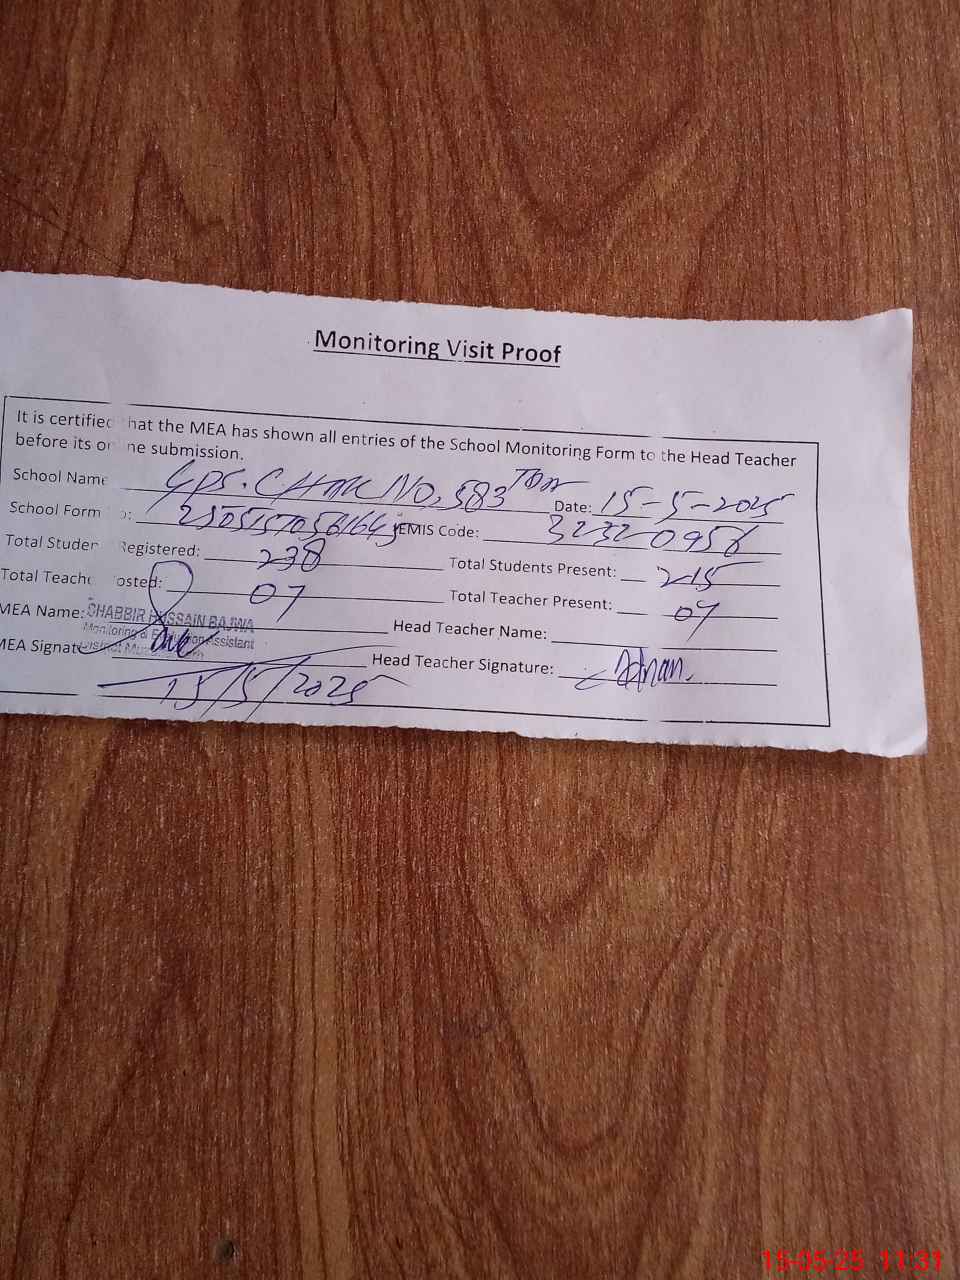 Monitoring Visit Proof
It is certified that the MEA has shown all entries of the School Monitoring Form to the Head Teacher
before its online submission.
School Name GPS. CHAK NO. 583 TDA Date: 15-5-2025
School Form No: EMIS Code: 32320956
Total Student Registered: 238 Total Students Present: 215
Total Teacher Posted: 07 Total Teacher Present: 07
MEA Name: SHABBIR HUSSAIN BAJWA Head Teacher Name:
Monitoring & Evaluation Assistant
District
MEA Signature Head Teacher Signature: Adnan
15/5/2025
15-05-25 11:31